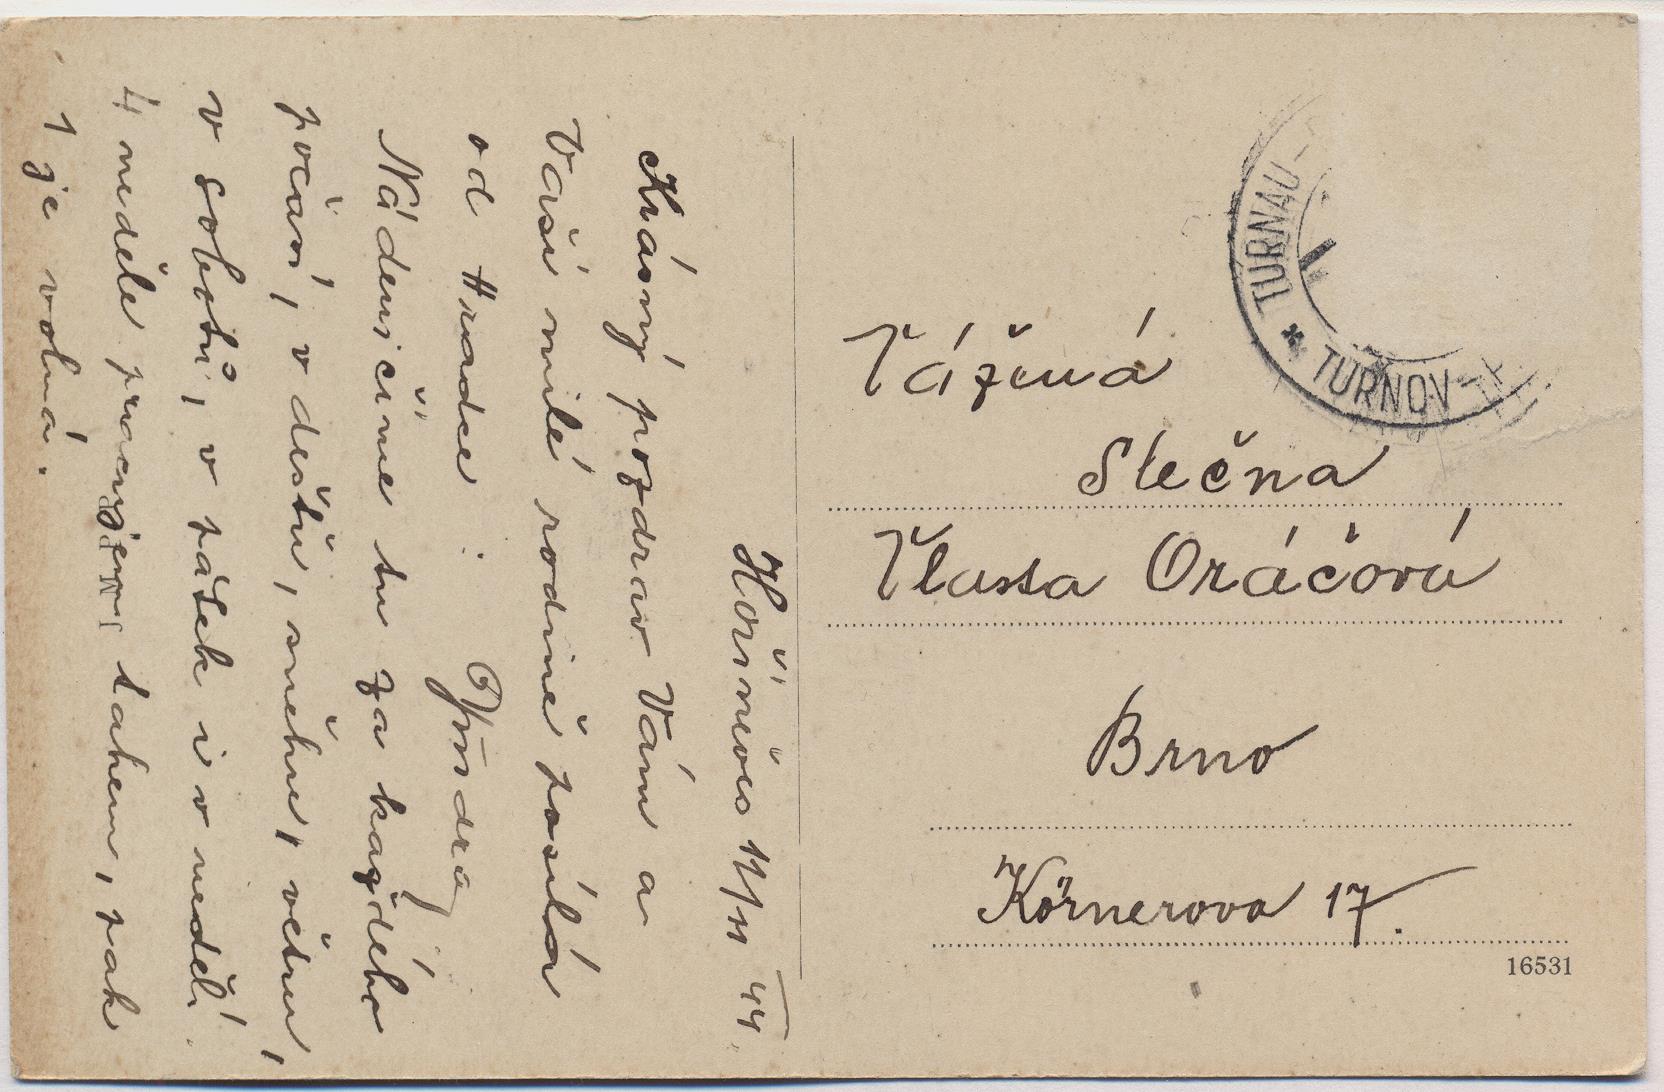 Hořiněves 11/11 44.
Krásný pozdrav Vám a
Vaší milé rodině posílá
od Hradce : Jindra
Nádeničíme tu za každého
počasí, v dešti, sněhu, větru,
v sobotu, v pátek i v neděli.
4 neděle pracujem tahem, pak
1 je volná.
Vážená
Slečna
Vlasta Oráčová
Brno
Körnerova 17.
16531
TURNAU - * TURNOV -